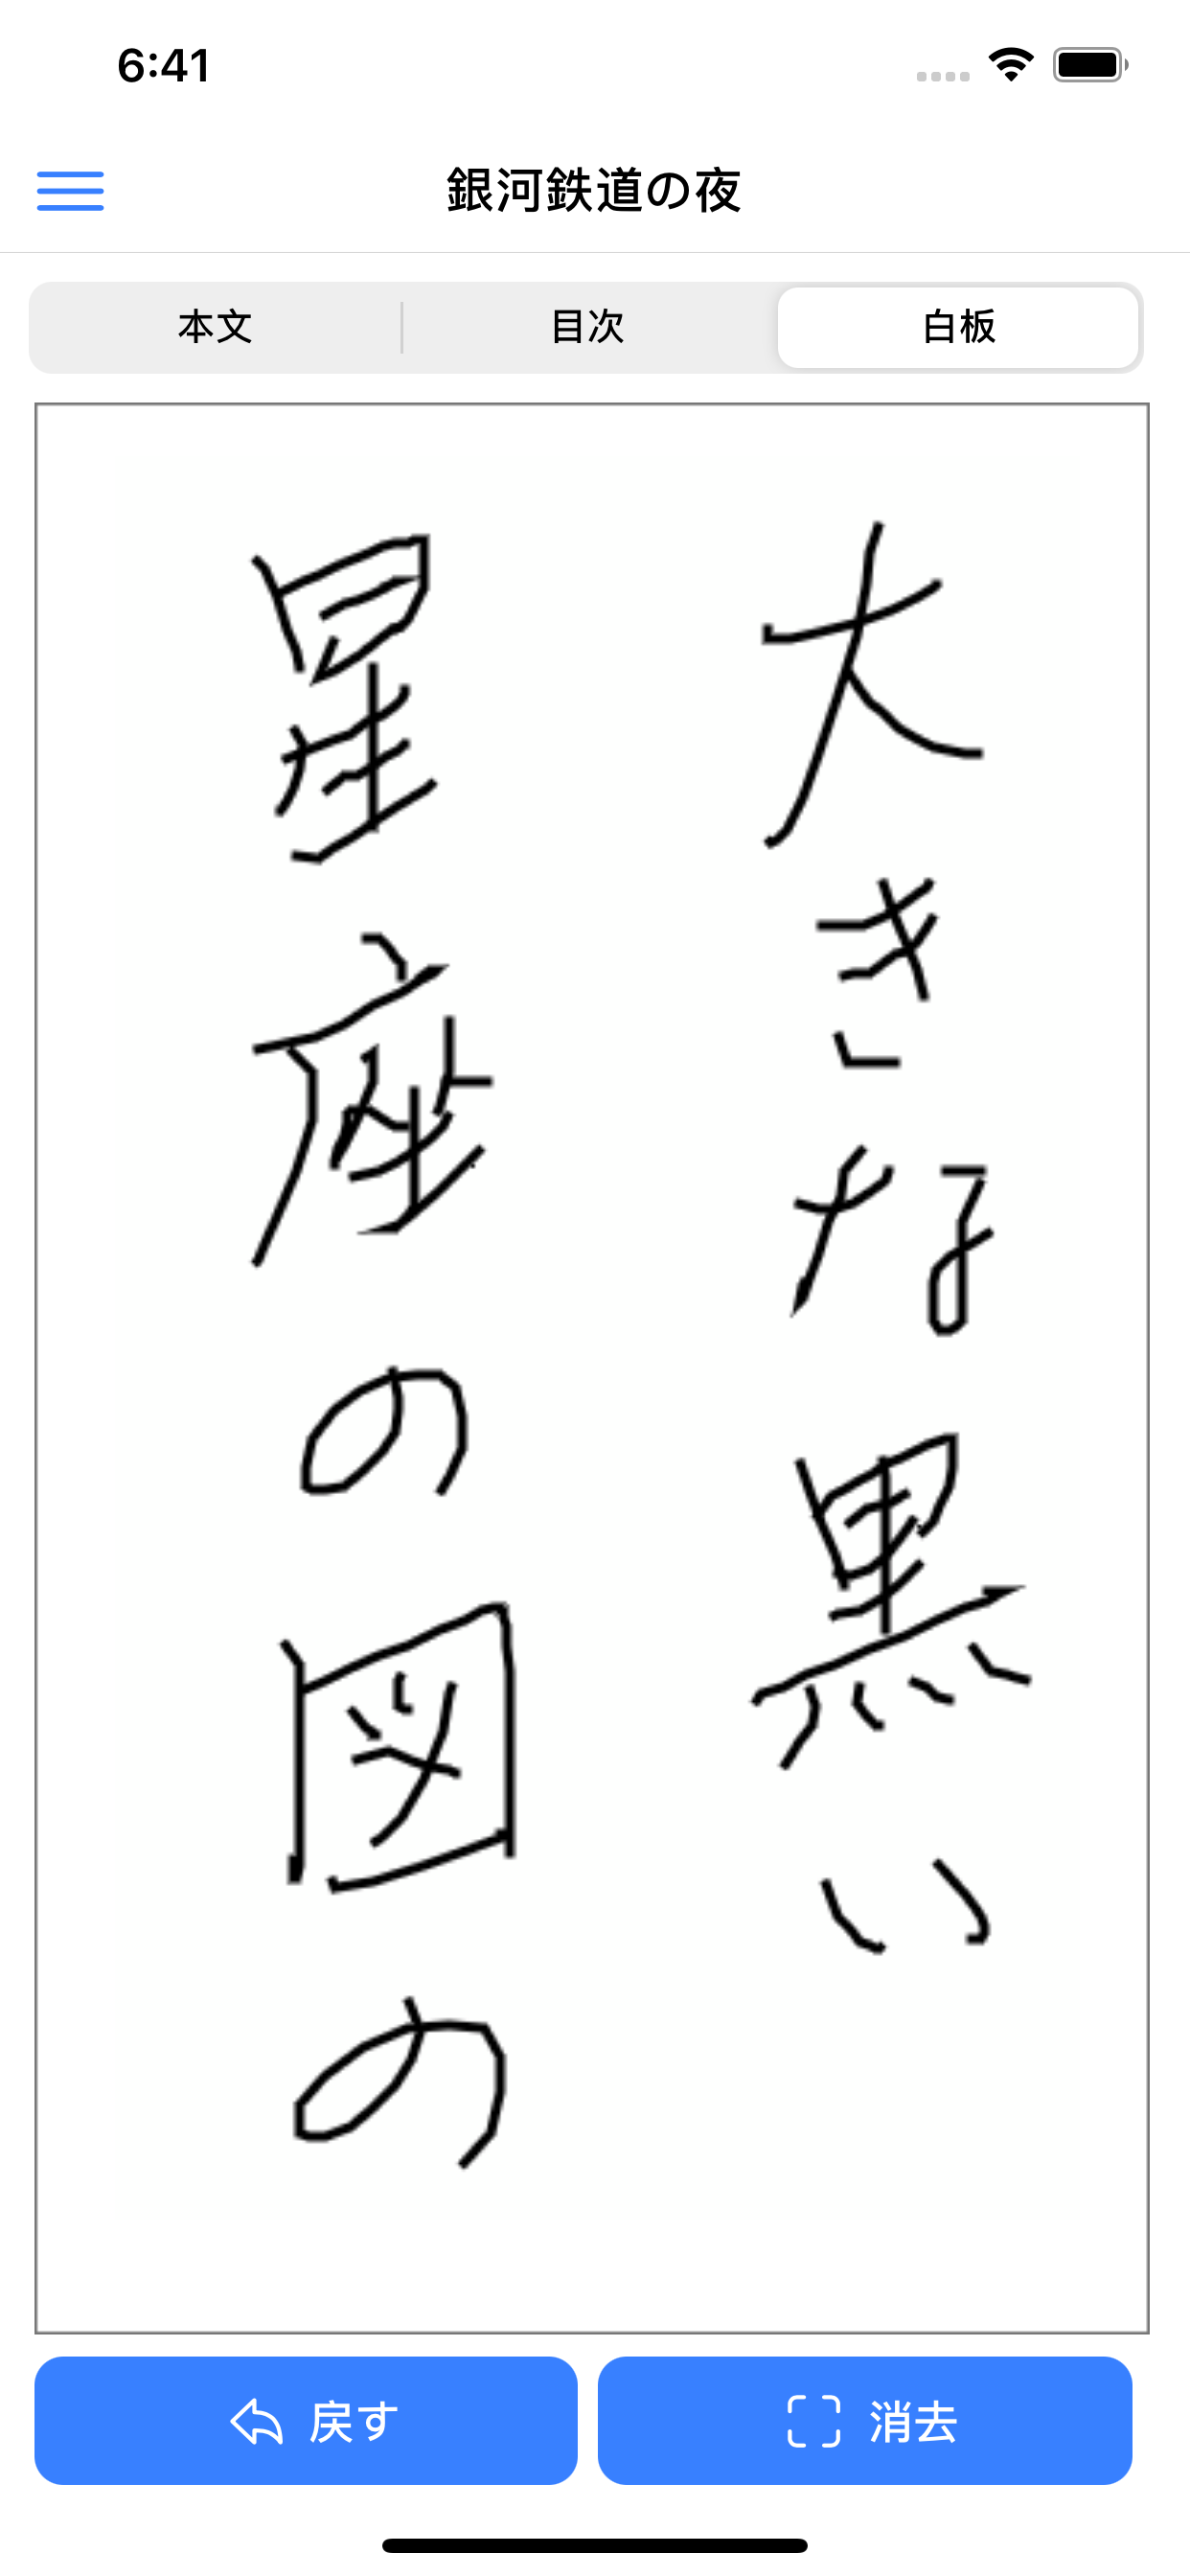 6:41
銀河鉄道の夜
本文
目次
白板
大きな黒い
星座の図の
戻す
消去